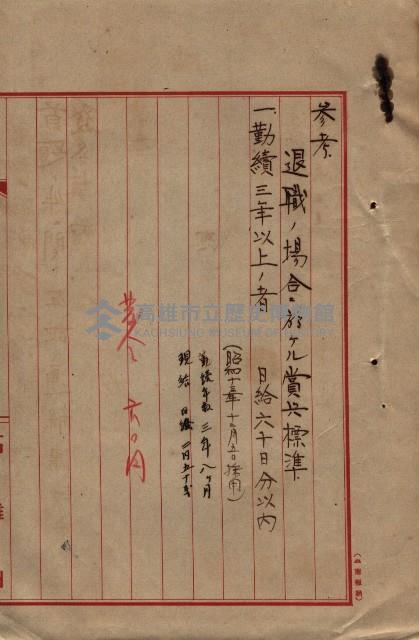 参考
退職ノ場合ニ於ケル賞与標準
一、勤続三年以上ノ者 日給六十日分以内
(昭和十三年十一月五日採用)
勤続年数 三年八ヶ月
現給 日給 一円五十銭
六〇円
高雄市立歷史博物館
KAOHSIUNG MUSEUM OF HISTORY